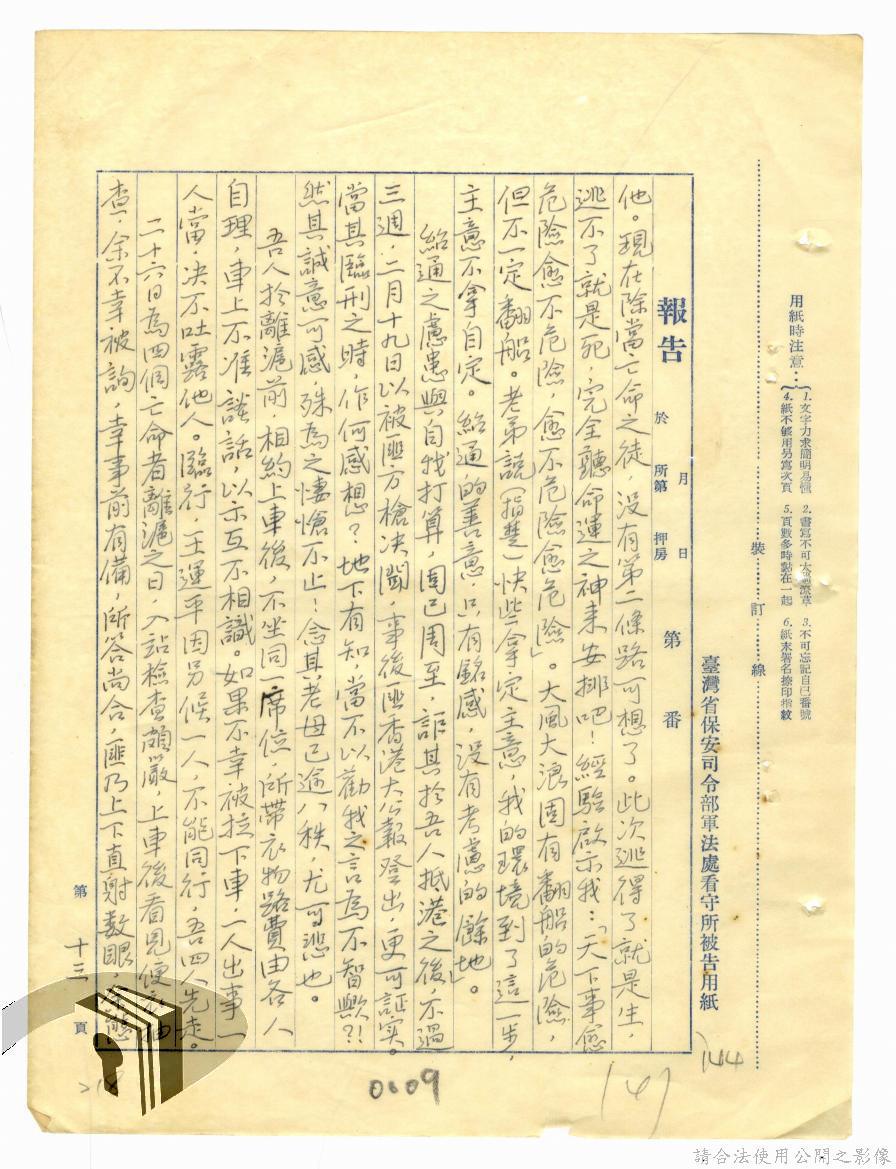 用紙時注意：
1.文字力求簡明易懂
2.書寫不可太過潦草
3.不可忘記自己番號
4.紙不够用另寫次頁
5.頁數多時黏在一起
6.紙末署名捺印指紋
裝訂線
臺灣省保安司令部軍法處看守所被告用紙
報告
於
月 日
所第 押房
第 番
他。現在除當亡命之徒，没有第二條路可想了。此次逃得了就是生，
逃不了就是死，完全聽命運之神来安排吧！經驗啟示我：「天下事愈
危險愈不危險，愈不危險愈危險」。大風大浪固有翻船的危險，
但不一定翻船。老弟說（指楚）快些拿定主意，我的環境到了這一步，
主意不拿自定。紿通的善意，只有銘感，没有考慮的餘地」。
紿通之慮患與自我打算，固已周至，詎其於吾人抵港之後，不過
三週，二月十九日以被匪方槍决聞，事後匪香港大公報登出，更可証实。
當其臨刑之時，作何感想？地下有知，當不以勸我之言為不智歟？！
然其誠意可感，殊為之悽愴不止！念其老母已逾八秩，尤可悲也。
吾人於離滬前，相約上車後，不坐同一席位，所帶衣物路費由各人
自理，車上不准談話，以示互不相識。如果不幸被拉下車，一人出事一
人當，决不吐露他人。臨行，王運平因另候一人，不能同行，吾四人先走。
二十六日為四個亡命者離滬之日，入站檢查頗嚴，上車後看見便衣抽
查，余不幸被詢，幸事前有備，所答尚合，匪乃上下直射數眼，余態
第 十三 頁
0009
144
請合法使用公開之影像